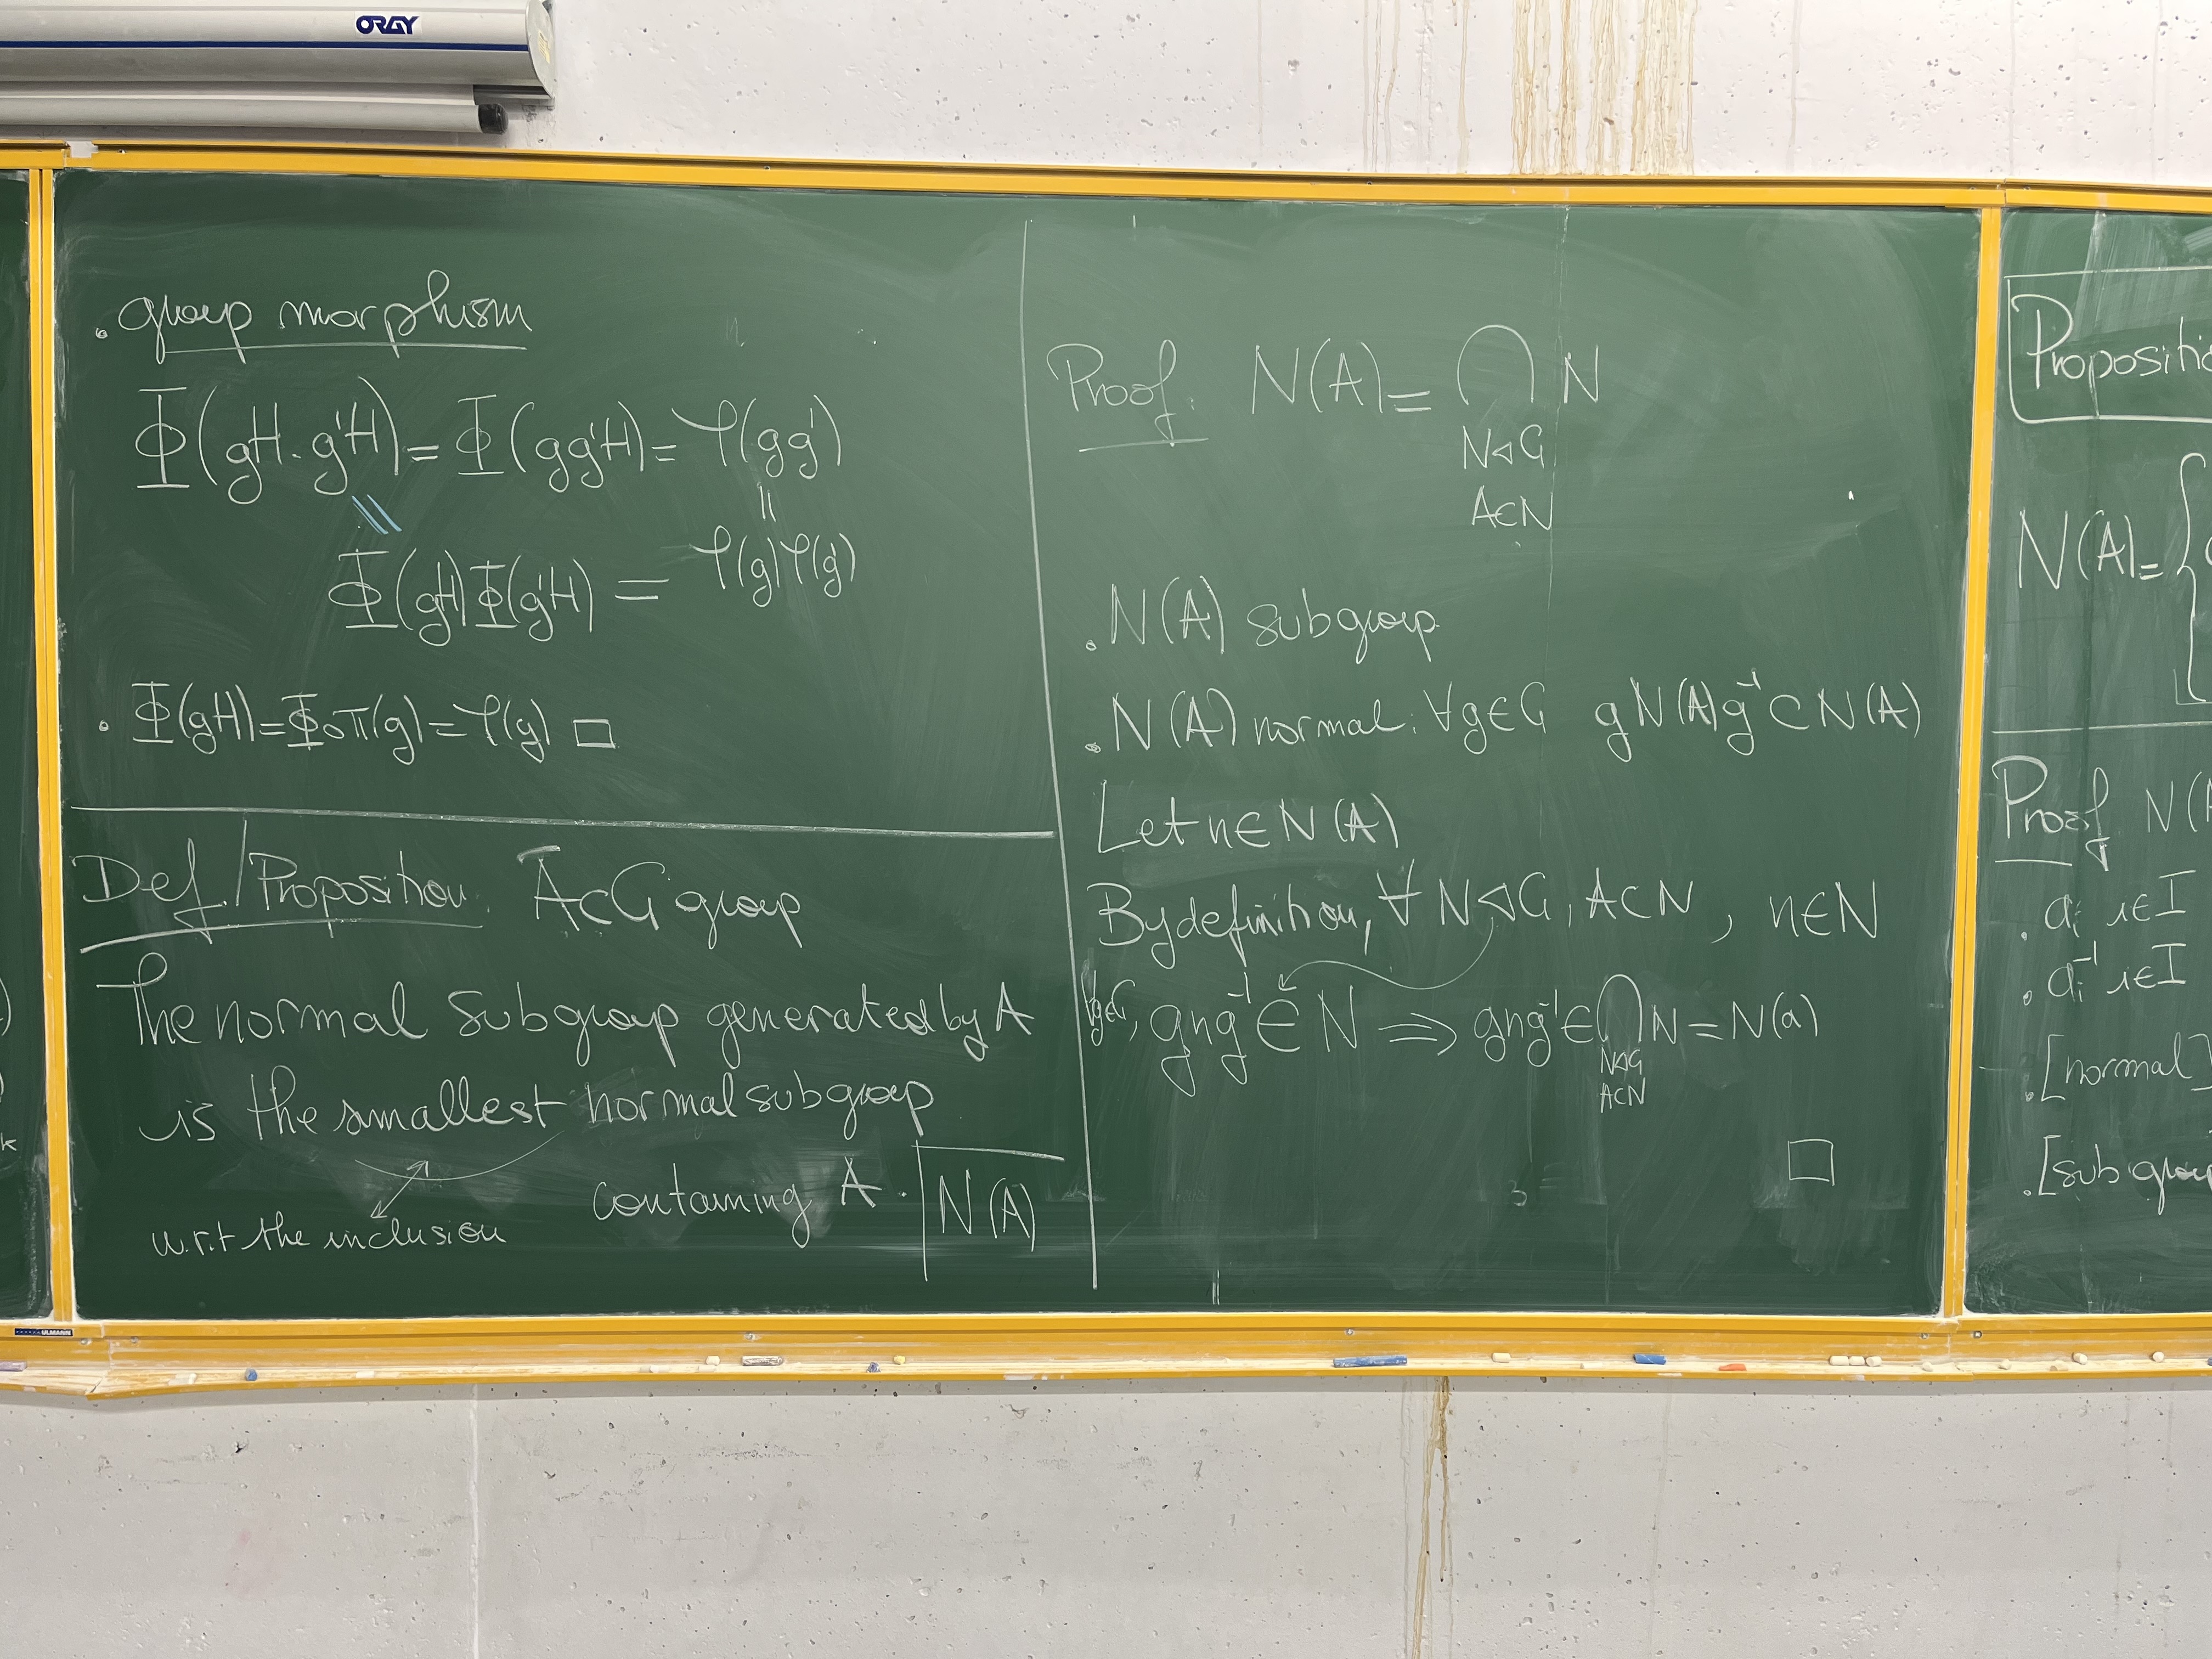 ORAY
. group morphism
Φ(gH.g'H) = Φ(gg'H) = φ(gg')
\\ ||
Φ(gH)Φ(g'H) = φ(g)φ(g')
. Φ(gH) = Φ∘π(g) = φ(g) □
Def/Proposition. A⊂G group
The normal subgroup generated by A
is the smallest normal subgroup
containing A. N(A)
w.r.t the inclusion
Proof. N(A) = ⋂ N
N◁G
A⊂N
. N(A) subgroup
. N(A) normal: ∀g∈G gN(A)g⁻¹⊂N(A)
Let n∈N(A)
By definition, ∀N◁G, A⊂N, n∈N
∀g∈G, gng⁻¹∈N ⟹ gng⁻¹∈⋂N = N(a)
N◁G
A⊂N
□
N(A) = {
Proof N(
. aᵢ i∈I
. aᵢ⁻¹ i∈I
. [normal]
. [subgroup
ULMANN